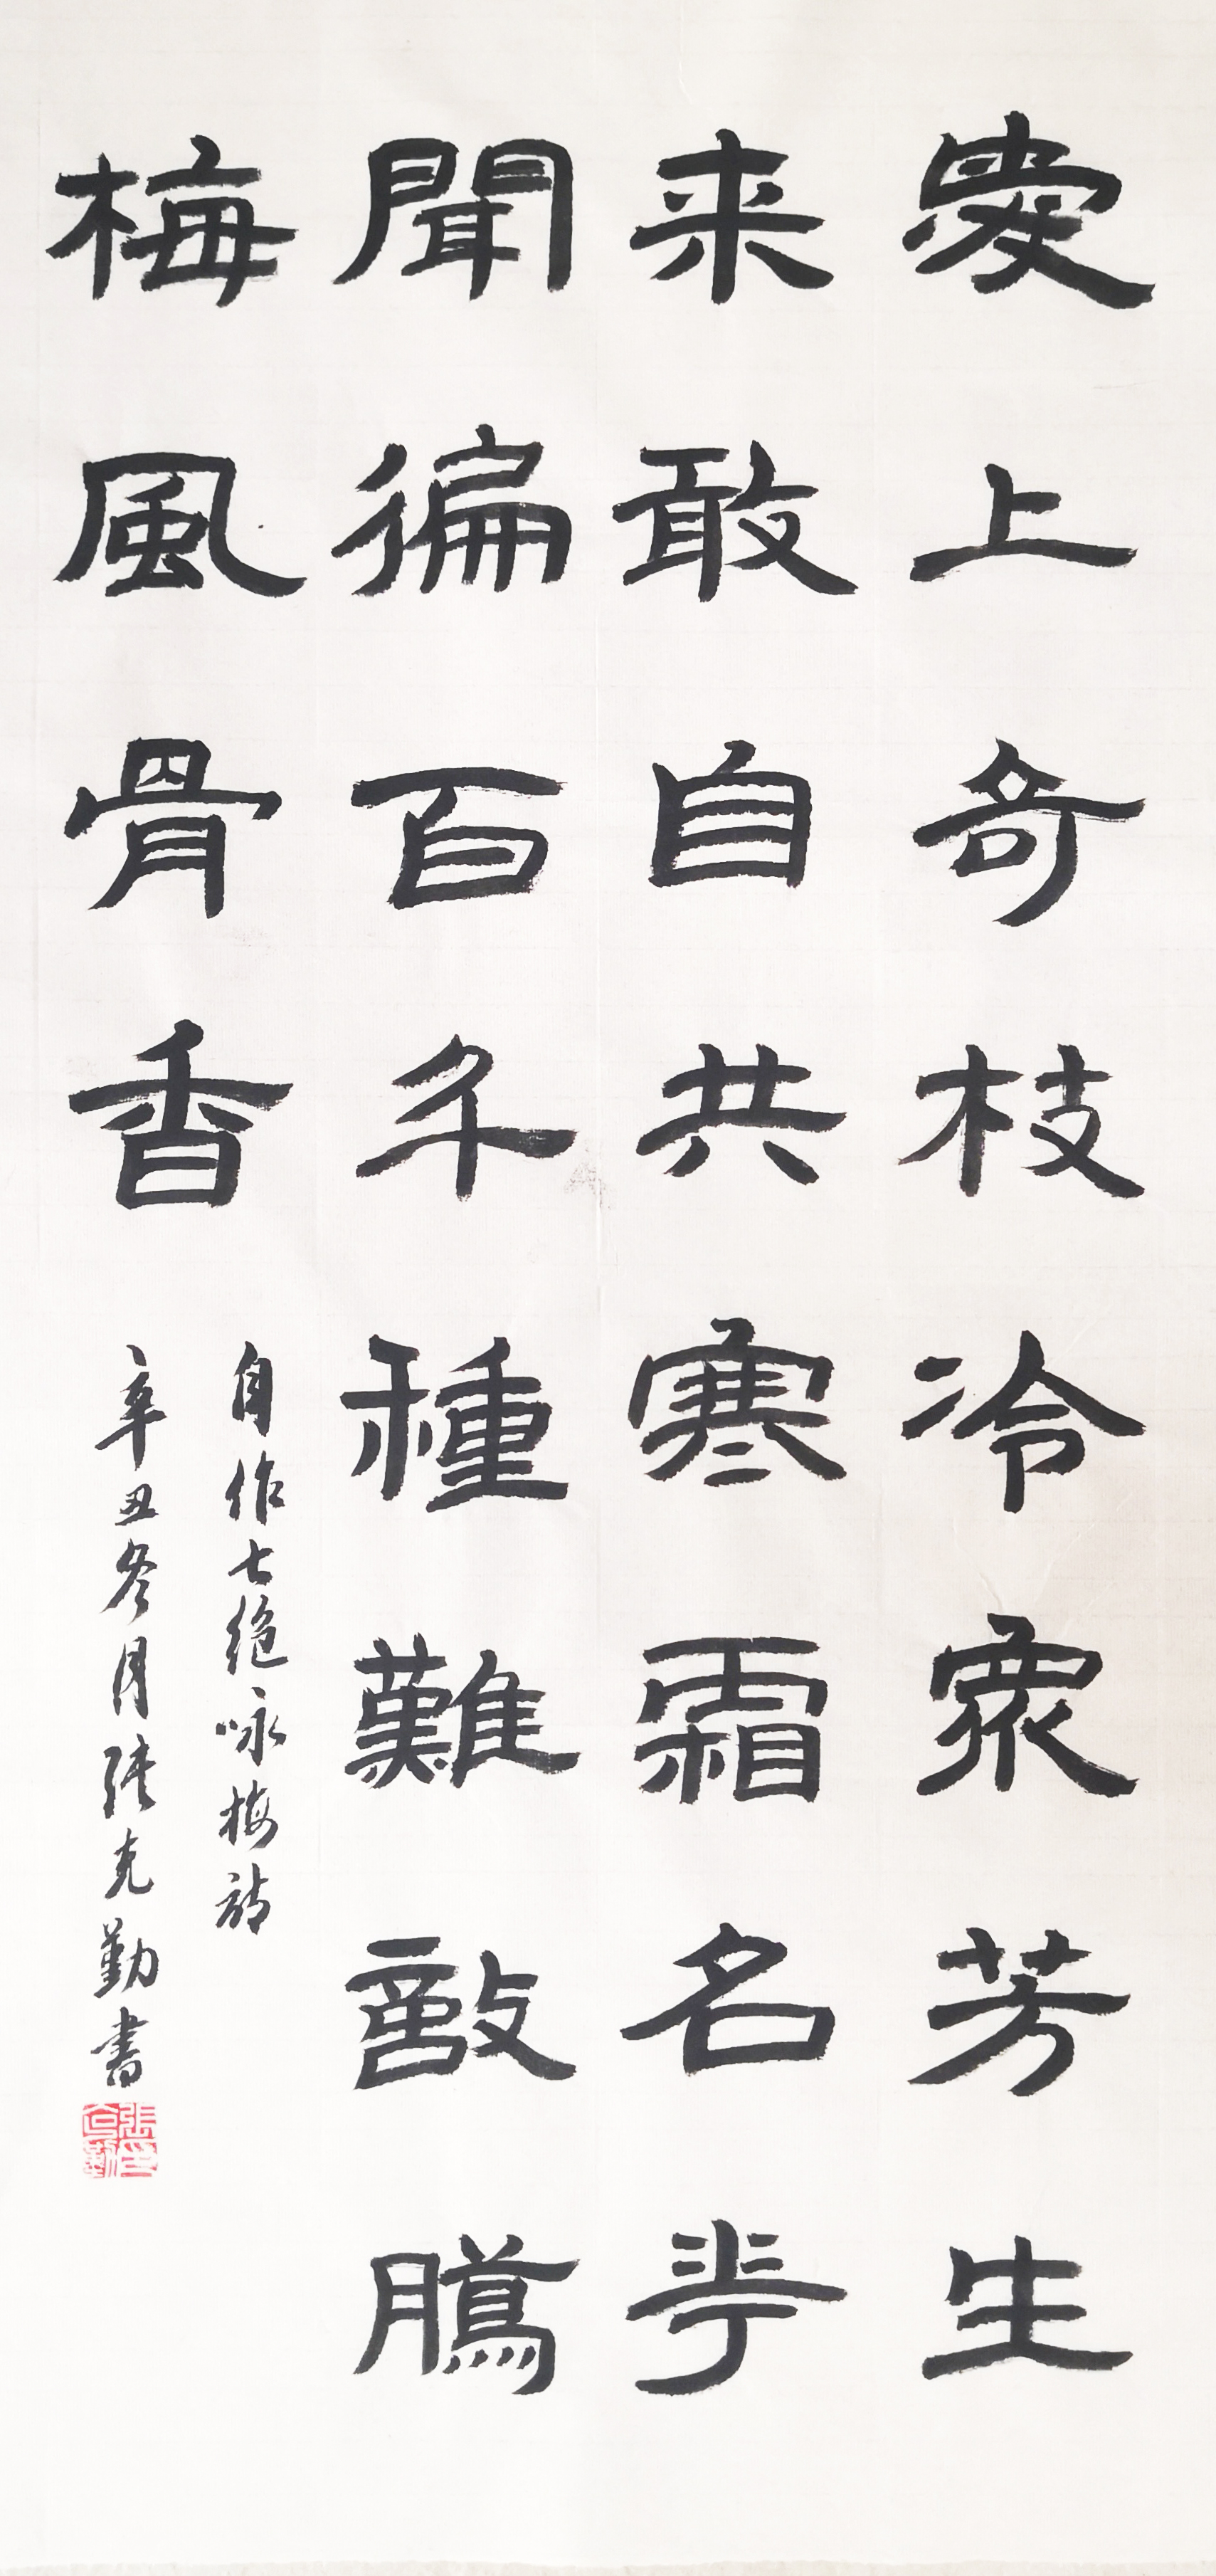 愛上奇枝冷衆芳生
来敢自共寒霜名華
聞徧百千種難敵臘
梅風骨香
自作七绝咏梅詩
辛丑冬月張克勤書
張克勤印